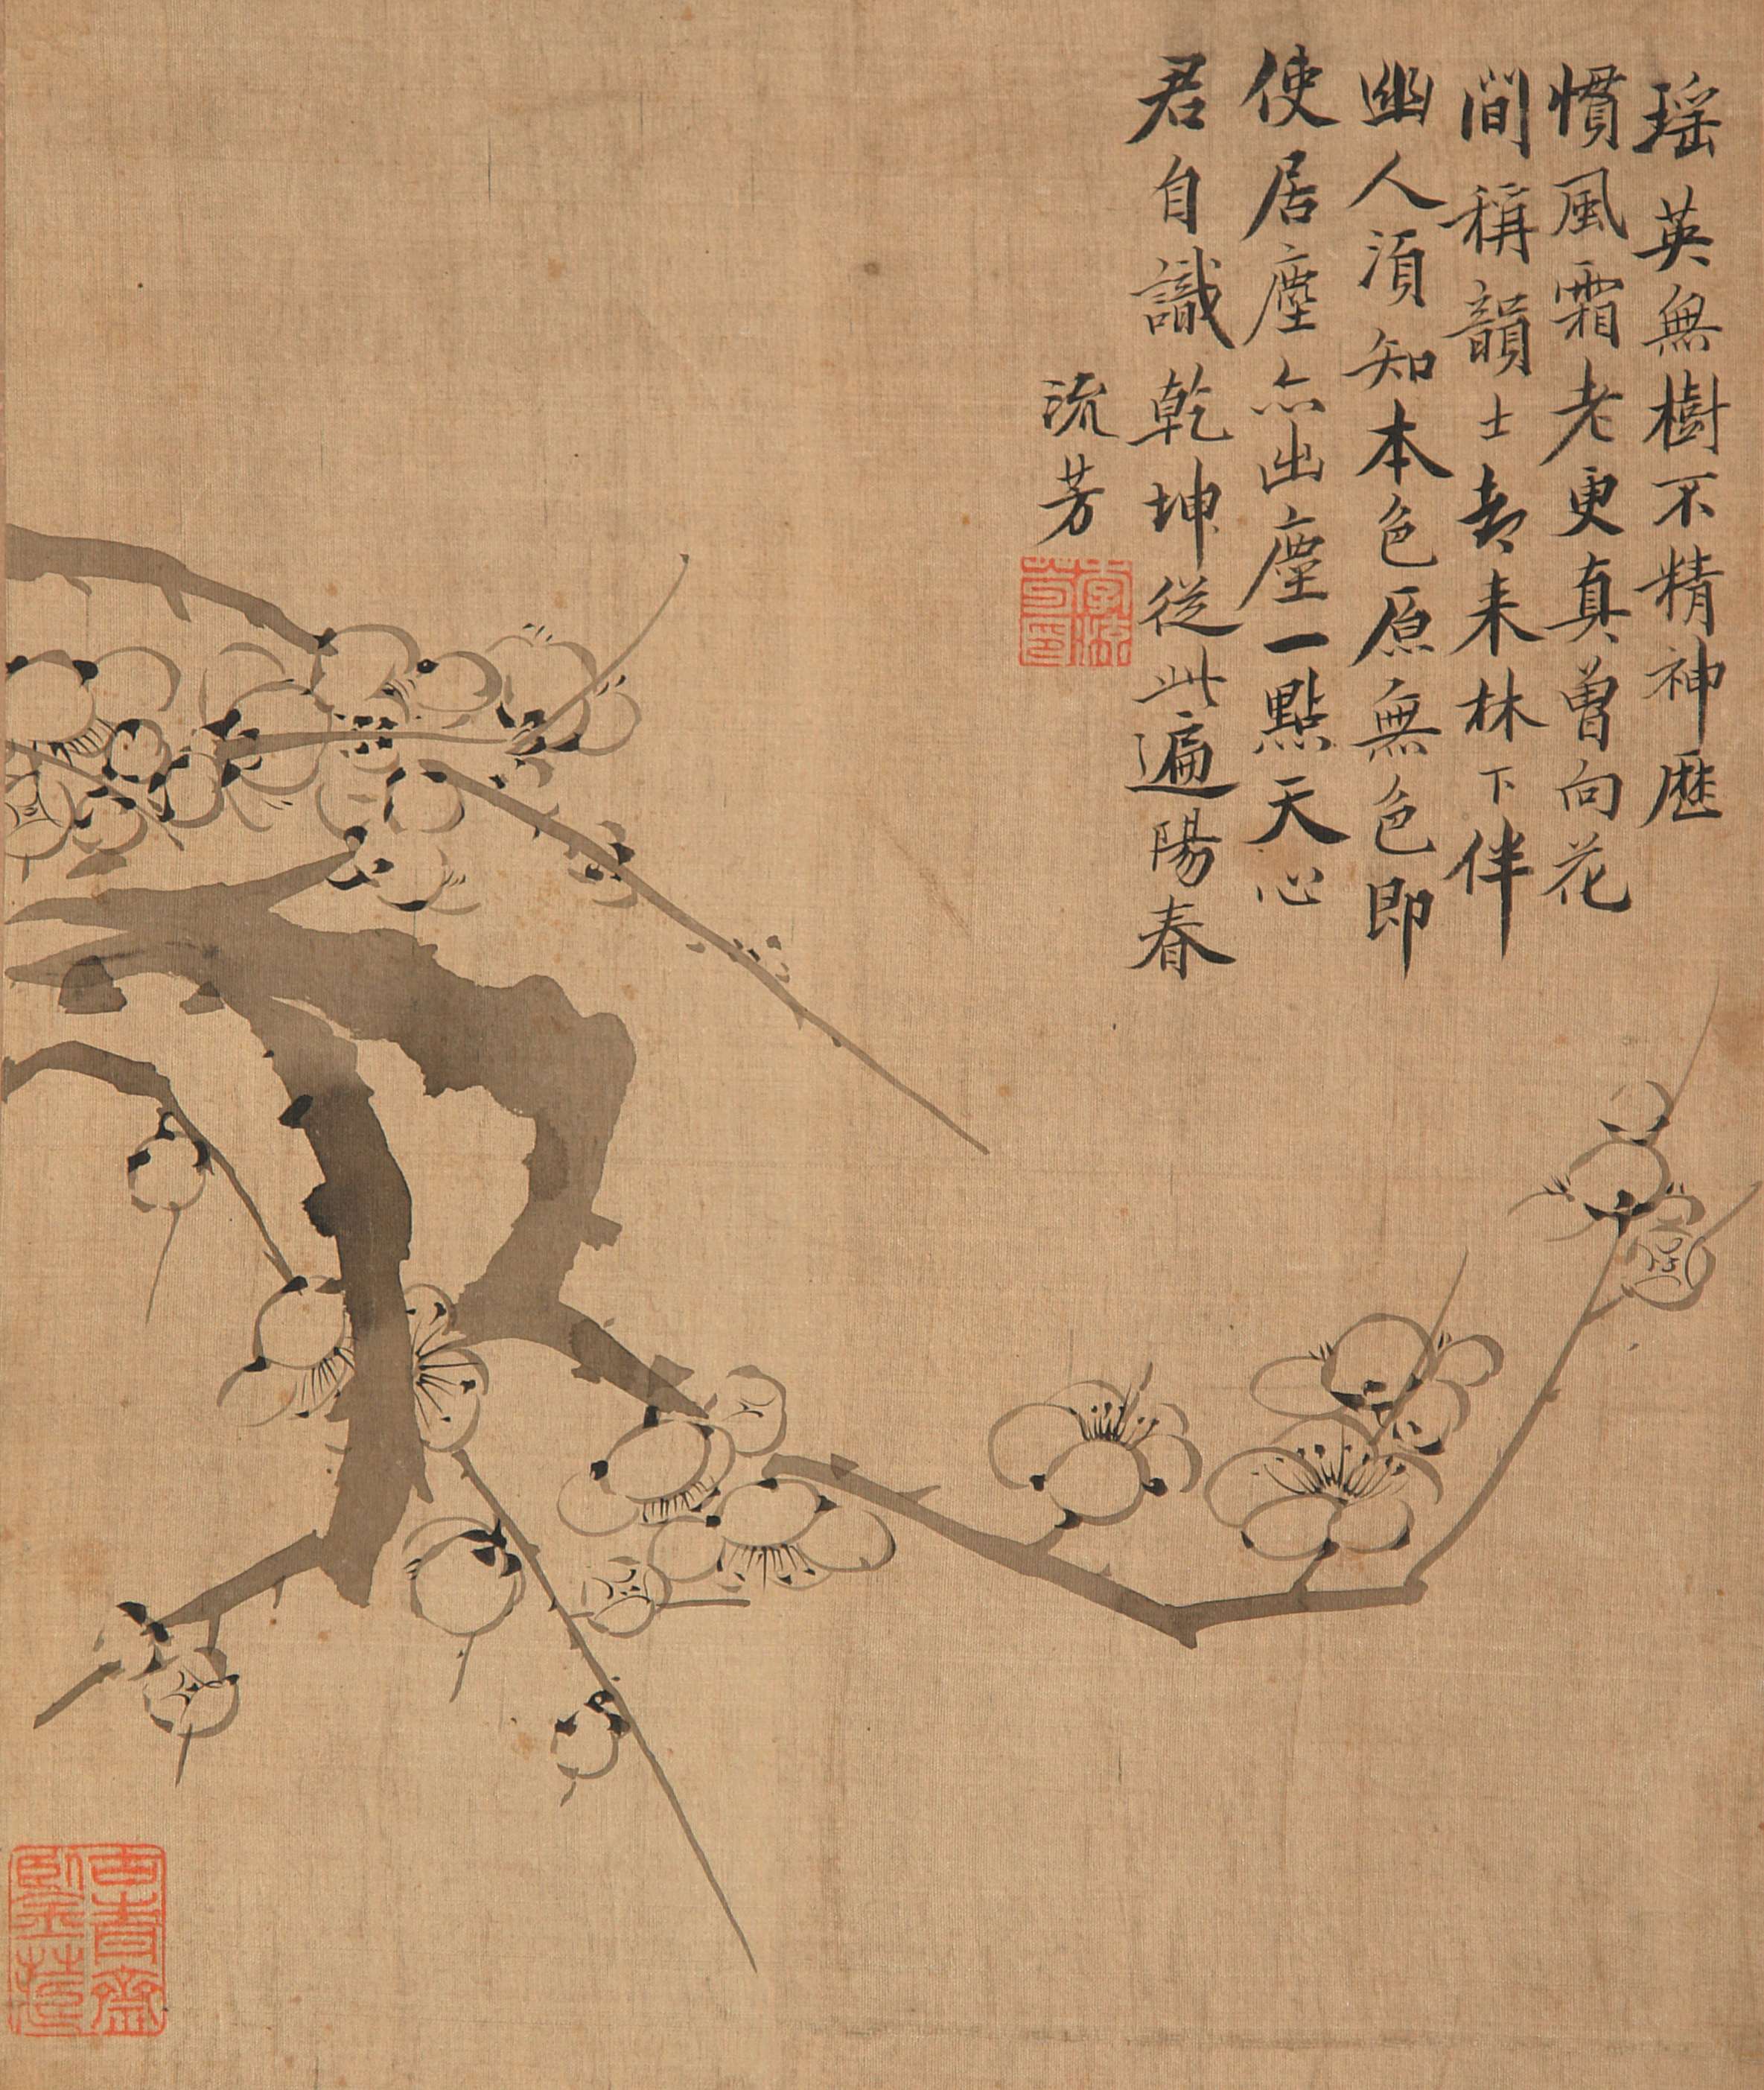 瑶英無樹不精神歷
慣風霜老更真曾向花
間稱韻士却来林下伴
幽人須知本色原無色即
使居塵亦出塵一點天心
君自識乾坤從此遍陽春
流芳
李流芳印